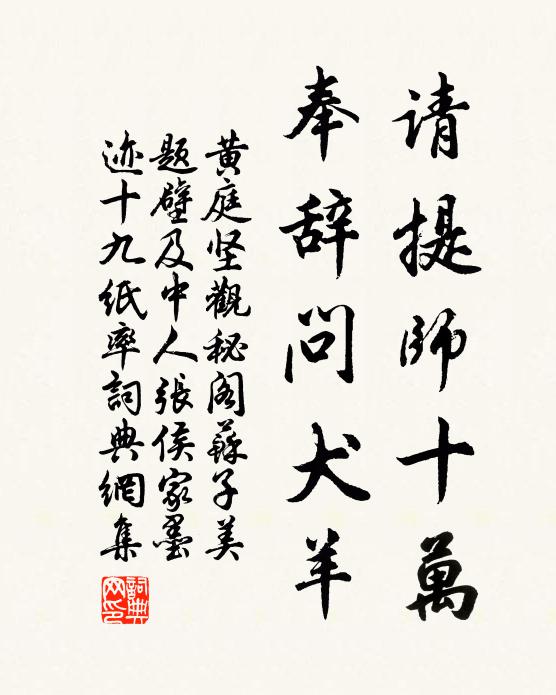 请提師十萬
奉辞問犬羊
黄庭坚觀秘阁蘇子美
题壁及中人張侯家墨
迹十九纸率詞典網集
詞典
网印